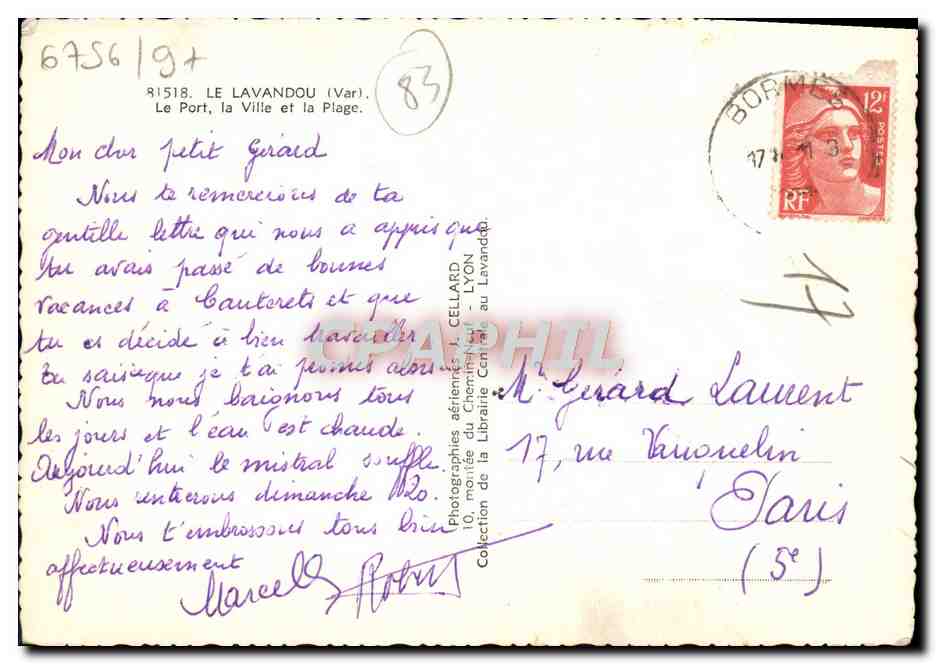 6756/97
83
81518. LE LAVANDOU (Var).
Le Port, la Ville et la Plage.
Mon cher petit Gérard
Nous te remercions de ta
gentille lettre qui nous a appris que
tu avais passé de bonnes
vacances à Cauterets et que
tu es décidé à bien travailler
tu sais que je t'ai promis alors
Nous nous baignons tous
les jours et l'eau est chaude.
Aujourd'hui le mistral souffle.
Nous rentrerons dimanche 20.
Nous t'embrassons tous bien
affectueusement
Marcelle Robert
Photographies aériennes J. CELLARD
10, montée du Chemin-Neuf - LYON
Collection de la Librairie Centrale au Lavandou.
CPAPHIL
BORMES
17
12F
POSTES
RF
17
Mr Gérard Laurent
17, rue Vauquelin
Paris
(5e)